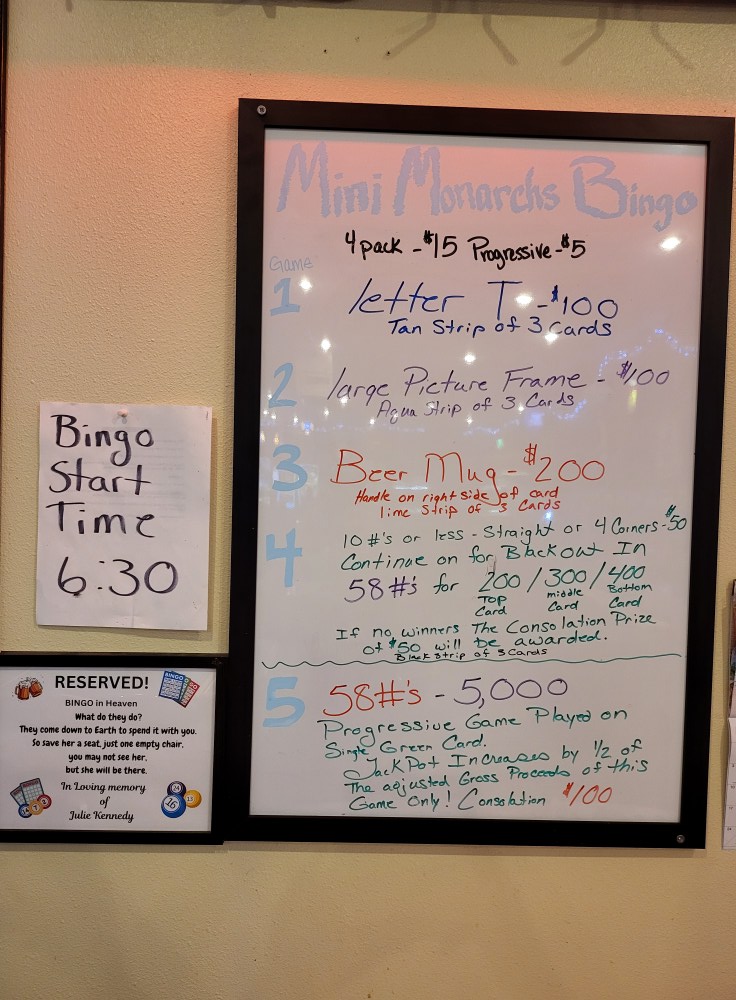 Mini Monarchs Bingo
4 pack - $15 Progressive - $5
Game
1 letter T - $100
Tan Strip of 3 Cards
2 large Picture Frame - $100
Aqua Strip of 3 Cards
3 Beer Mug - $200
Handle on right side of card
lime Strip of 3 Cards
4 10 #'s or less - Straight or 4 Corners - $50
Continue on for Blackout In
58 #'s for 200 / 300 / 400
Top middle Bottom
Card Card Card
If no winners The Consolation Prize
of $50 will be awarded.
Black Strip of 3 Cards
5 58#'s - 5,000
Progressive Game Played on
Single Green Card.
JackPot Increases by 1/2 of
The adjusted Gross Proceeds of this
Game Only! Consolation $100
Bingo
Start
Time
6:30
RESERVED!
BINGO in Heaven
What do they do?
They come down to Earth to spend it with you.
So save her a seat, just one empty chair,
you may not see her,
but she will be there.
In Loving memory
of
Julie Kennedy
BINGO
24
13
16